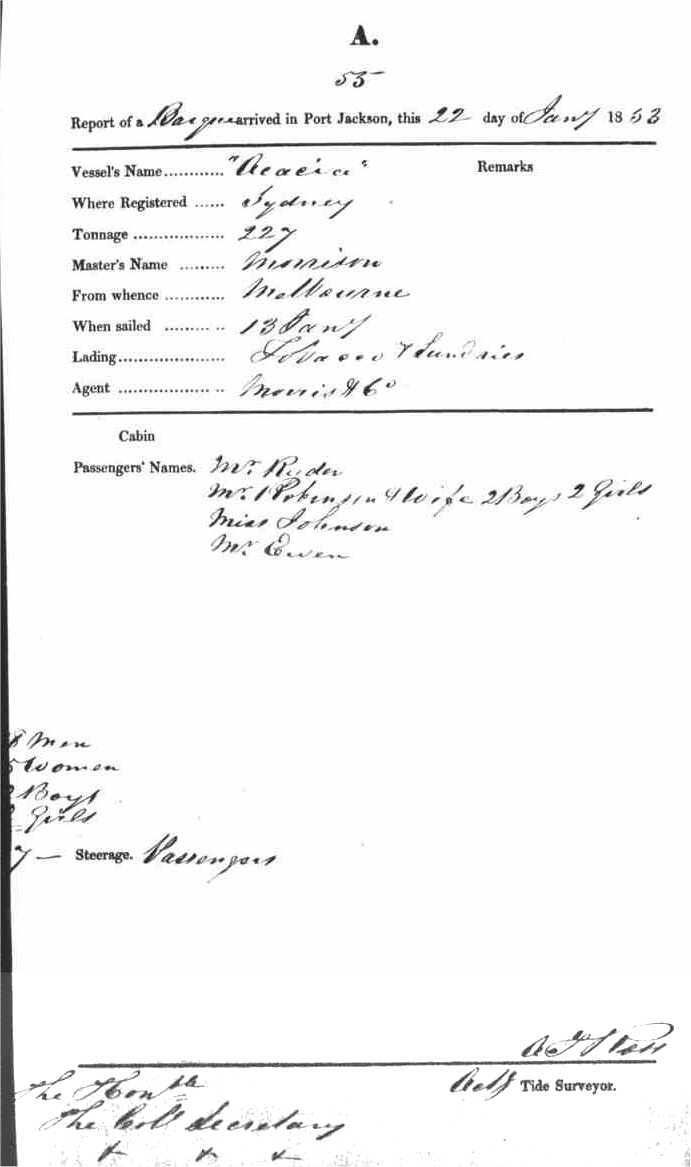 A.
55
Report of a Barque arrived in Port Jackson, this 22 day of Jany 1853
Vessel's Name............ "Acacia" Remarks
Where Registered ...... Sydney
Tonnage .................. 227
Master's Name ......... Morrison
From whence ............ Melbourne
When sailed ......... .. 13 Jany
Lading..................... Tobacco & Sundries
Agent ................... .. Morris & Co
Cabin
Passengers' Names. Mr. Ryder
Mr. Robinson & Wife 2 Boys 2 Girls
Miss Johnson
Mr. Ewen
8 Men
5 Women
2 Boys
2 Girls
7 — Steerage. Passengers
A
Actg Tide Surveyor.
The Honble
The Coll Secretary